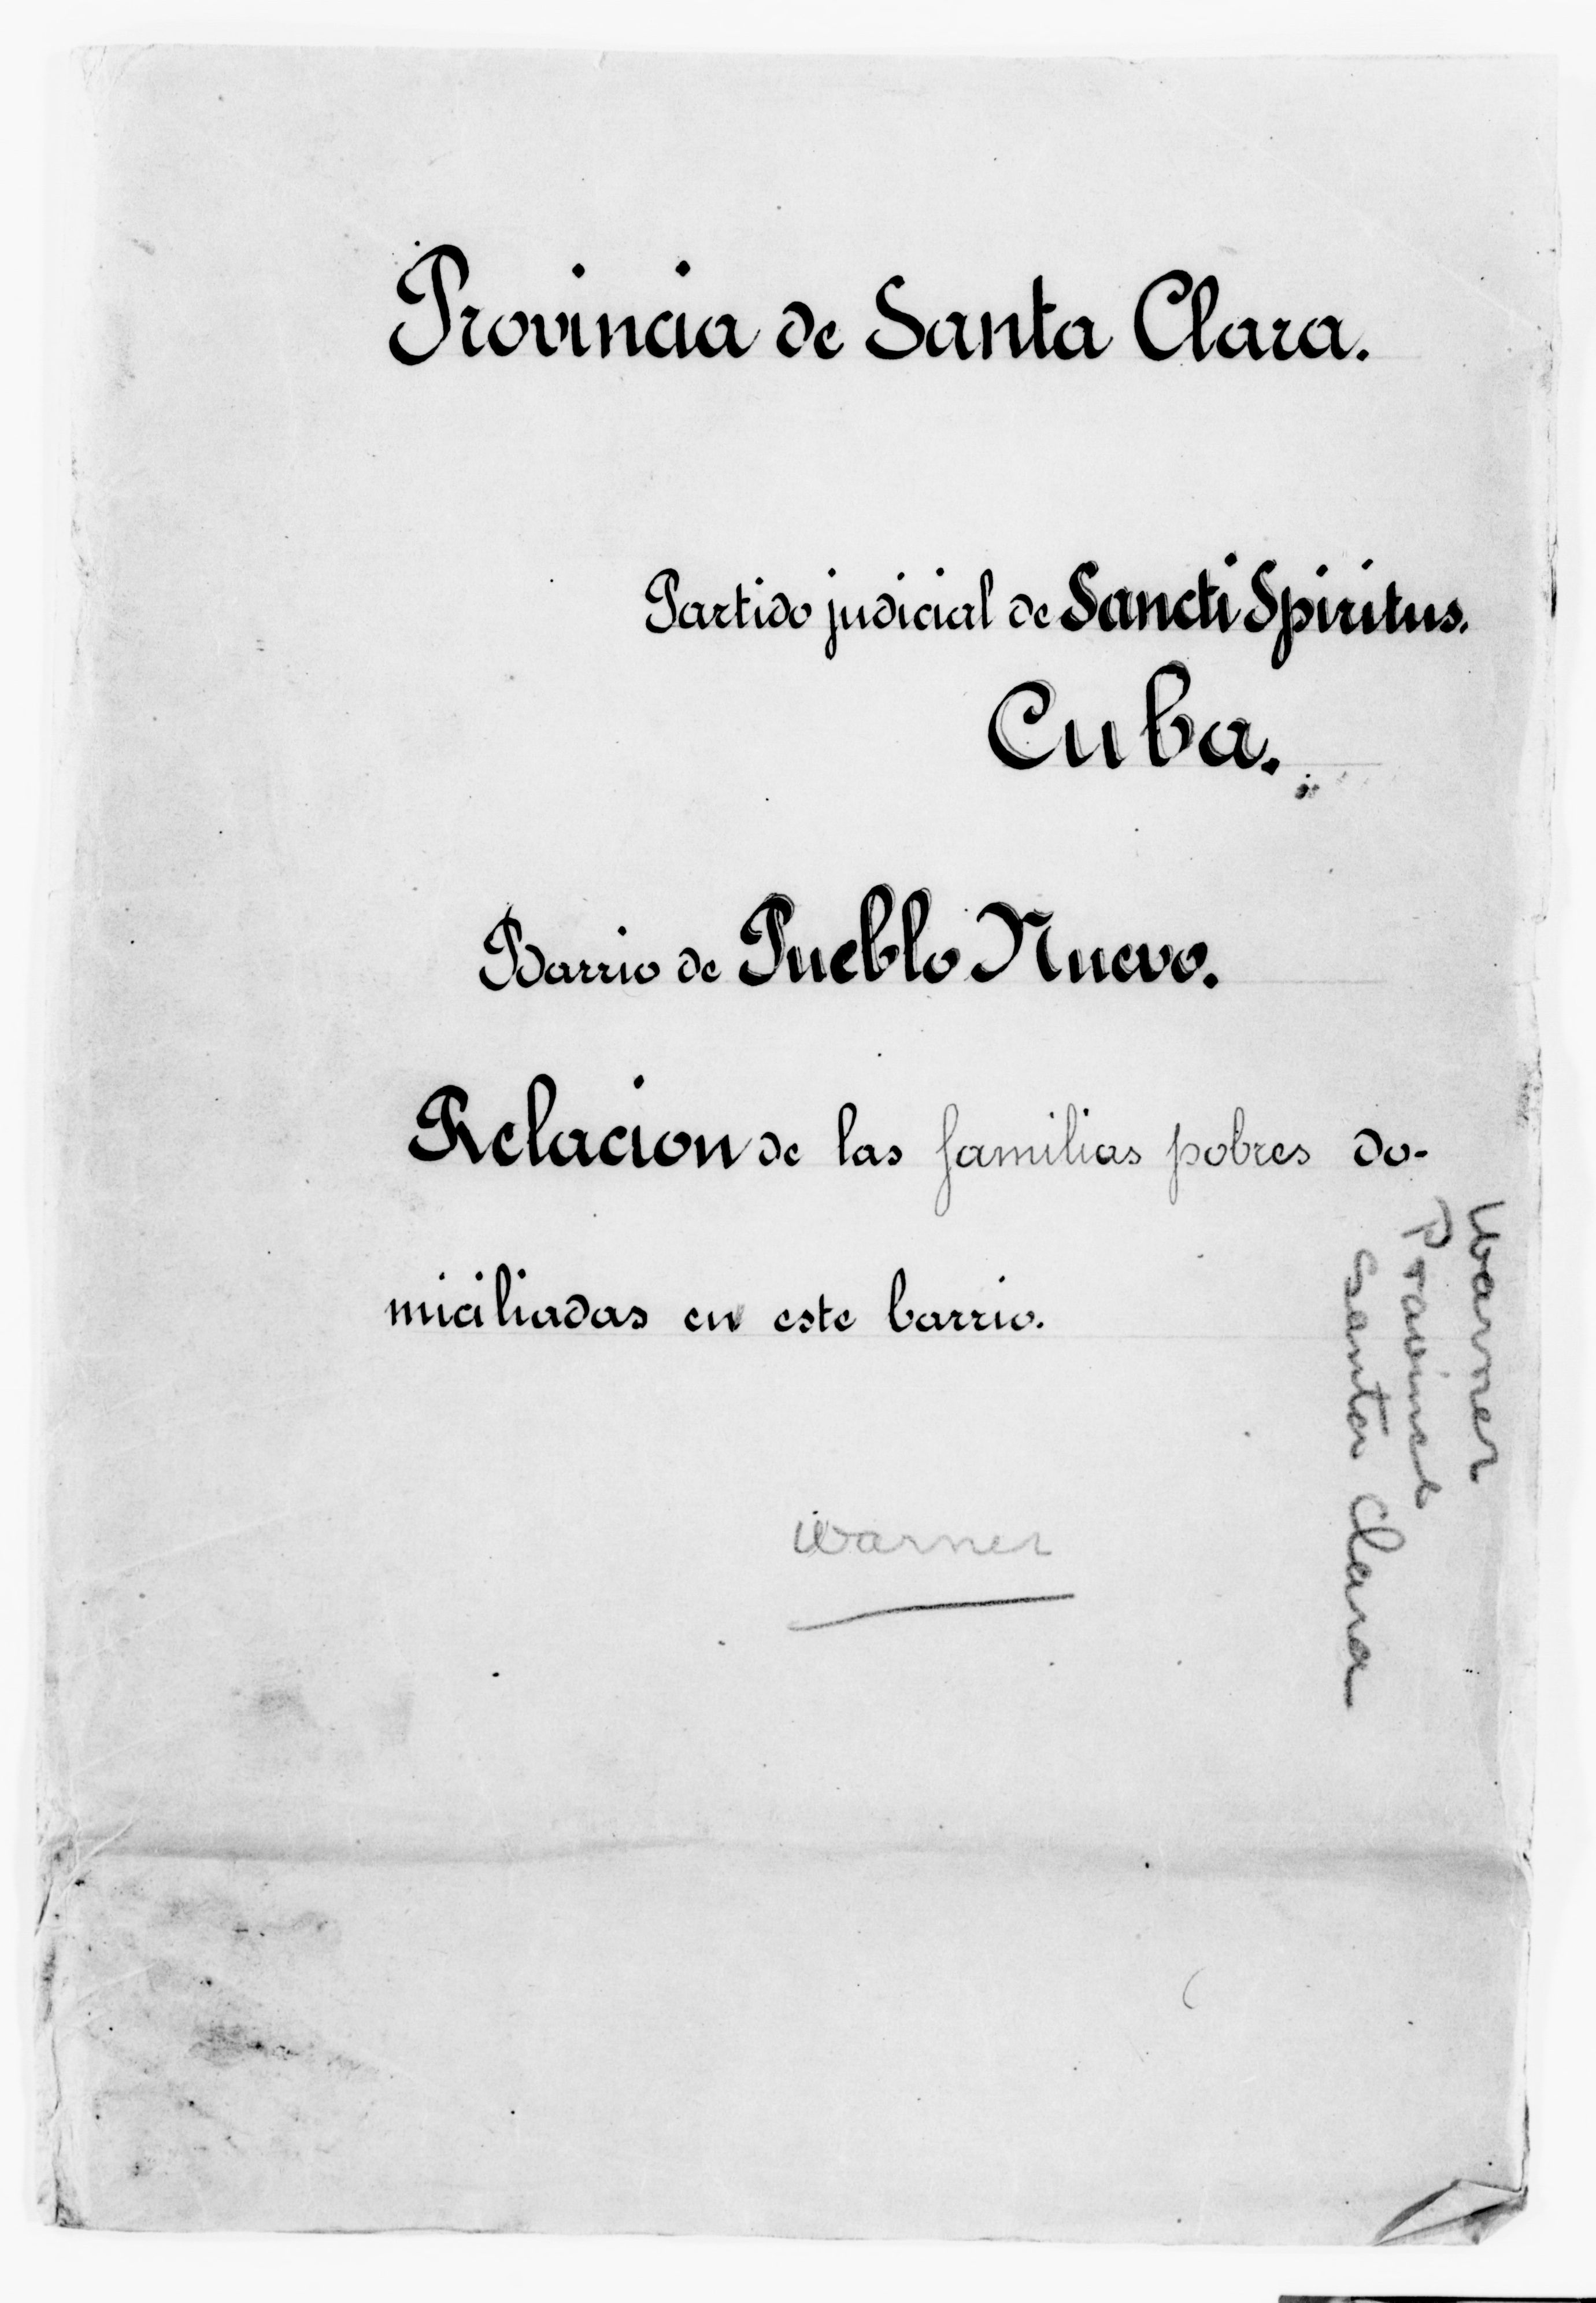 Provincia de Santa Clara.
Partido judicial de Sancti Spiritus.
Cuba.
Barrio de Pueblo Nuevo.
Relacion de las familias pobres do-
miciliadas en este barrio.
Warner
Warner
Province
Santa Clara